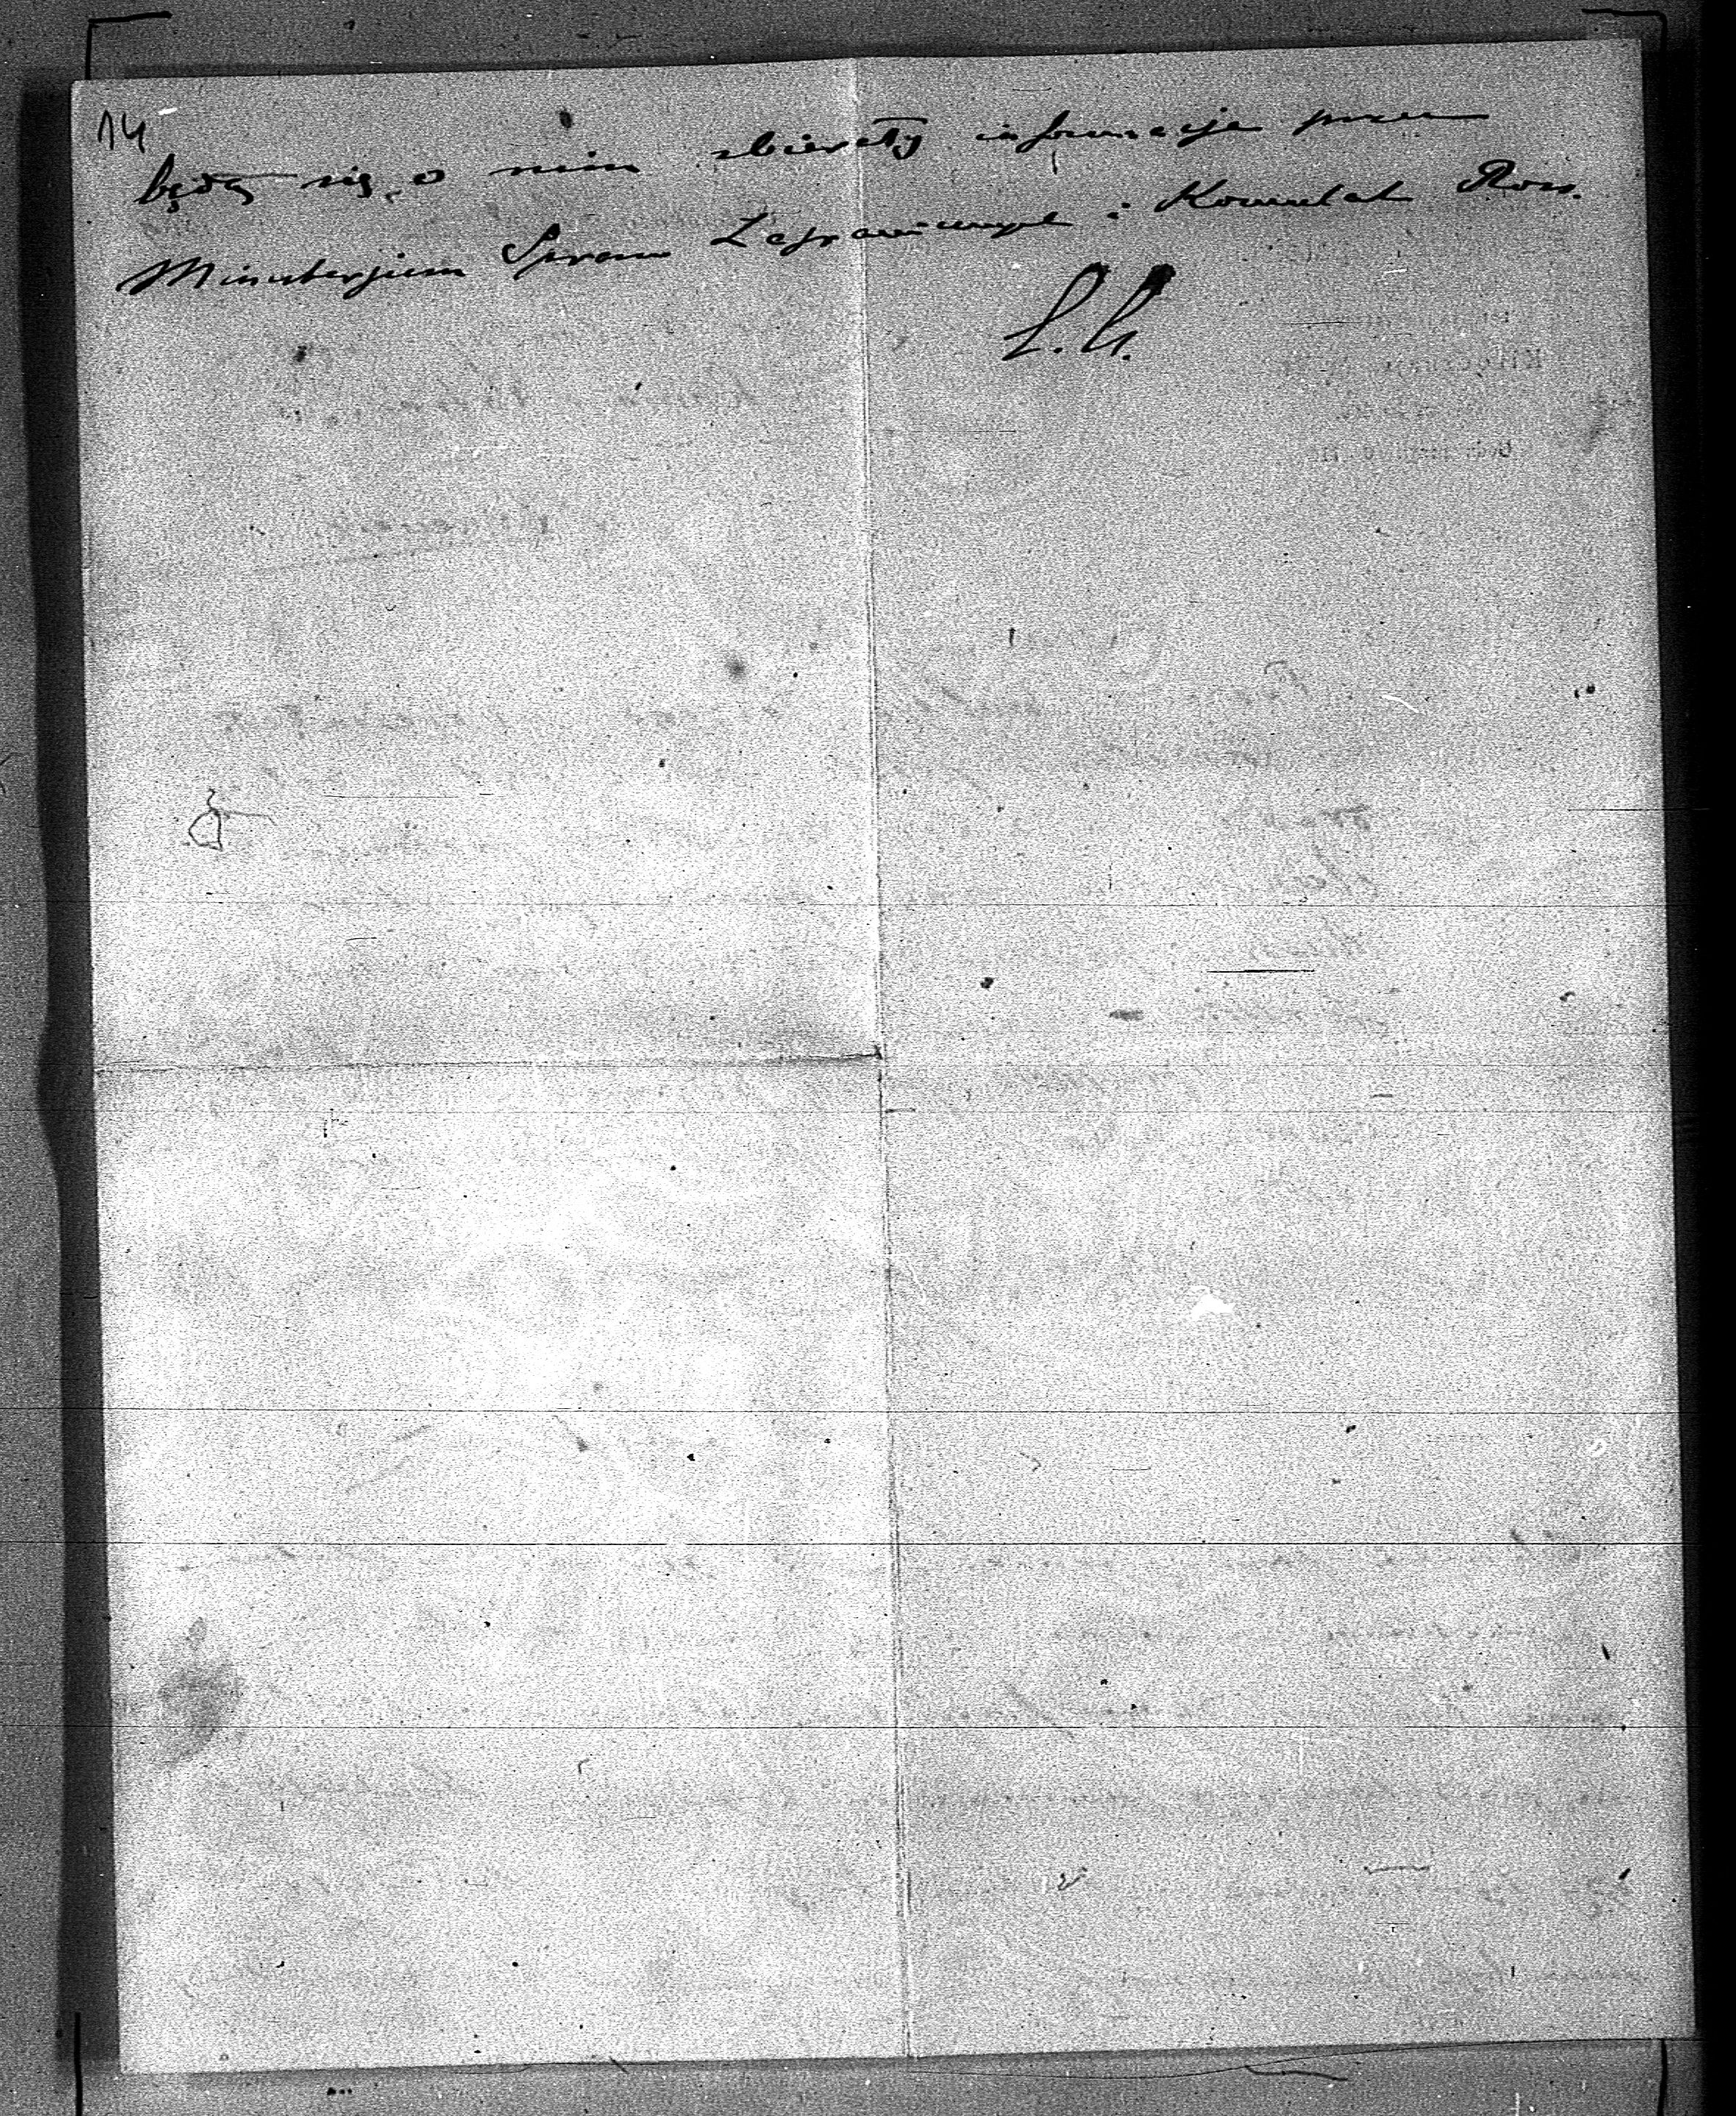 14
będą się o nim zbierały informacje przez
Ministerjum Spraw Zagranicznych i Konsulat Ross.